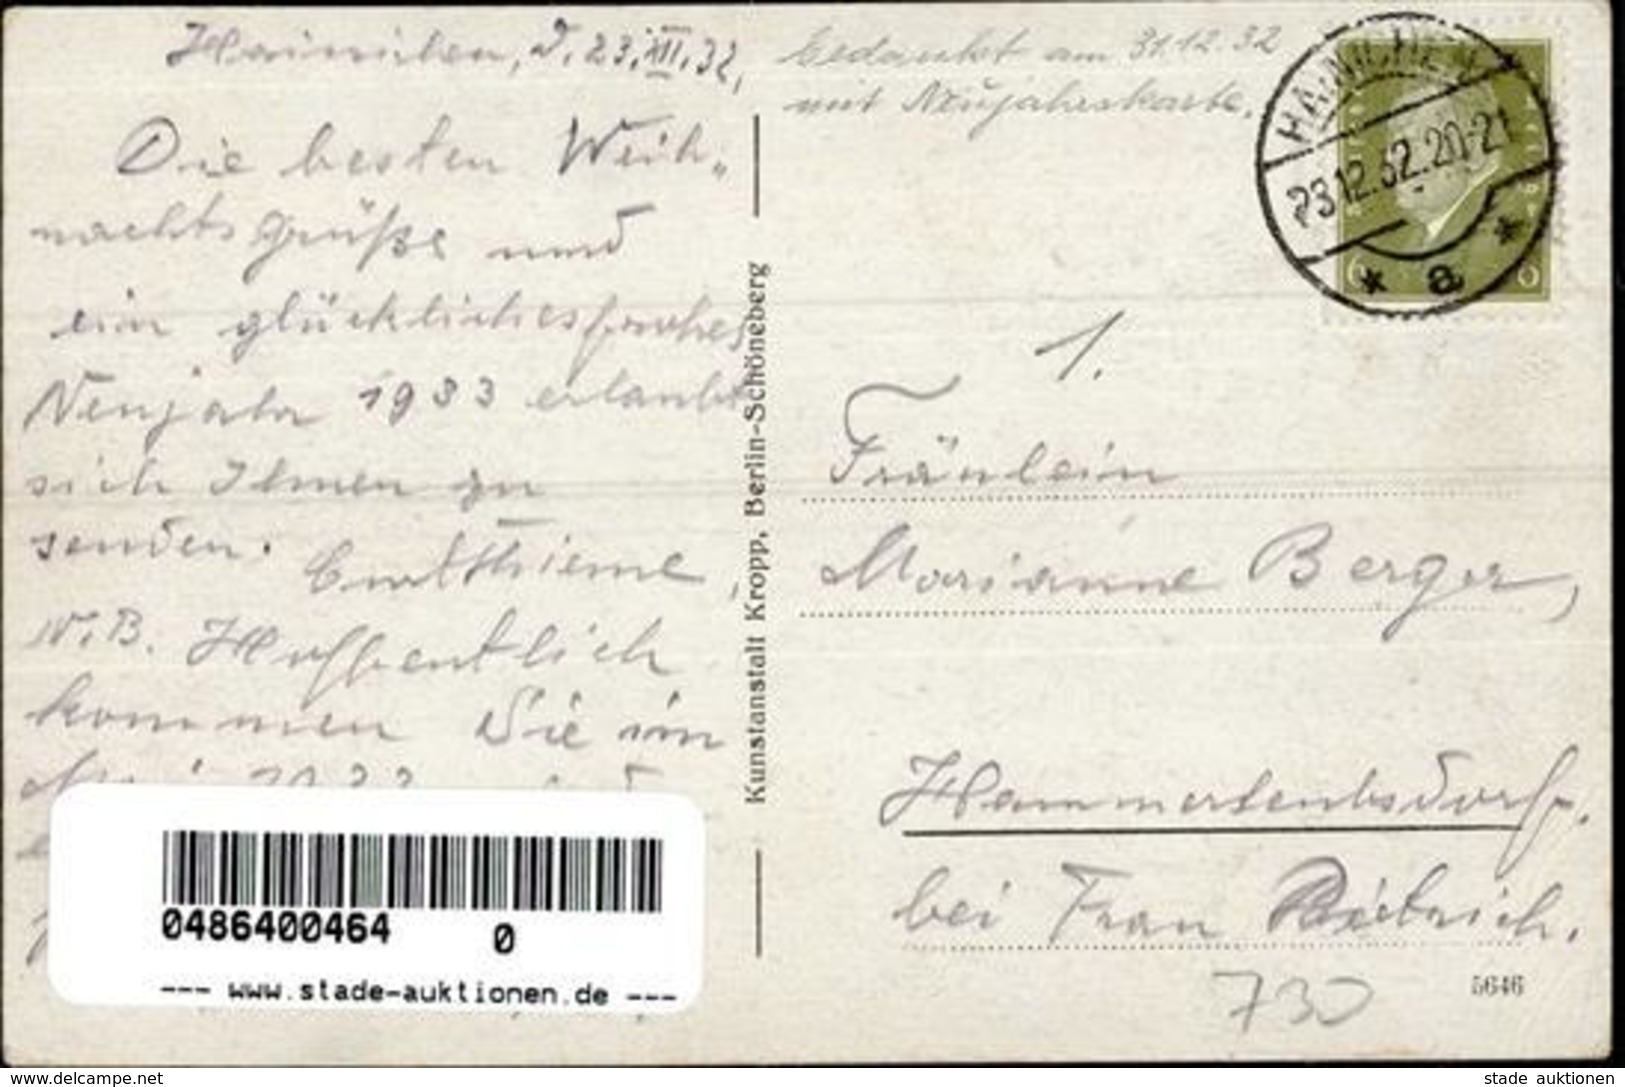 Hainichen, d. 23. XII. 32,
Die besten Weih-
nachtsgrüße und
ein glückliches frohes
Neujahr 1933 erlaubt
sich Ihnen zu
senden.
Curt Thieme,
N.B. Hoffentlich
kommen Sie im
0486400464 0
--- www.stade-auktionen.de ---
Kunstanstalt Kropp, Berlin-Schöneberg
Bedankt am 31.12.32
mit Neujahrskarte.
HAINICHEN
23.12.32.20-21
* a *
6 6
1.
Fräulein
Marianne Berger,
Hammerleubsdorf.
bei Frau Dietrich.
5646
730
www.delcampe.net
stade auktionen